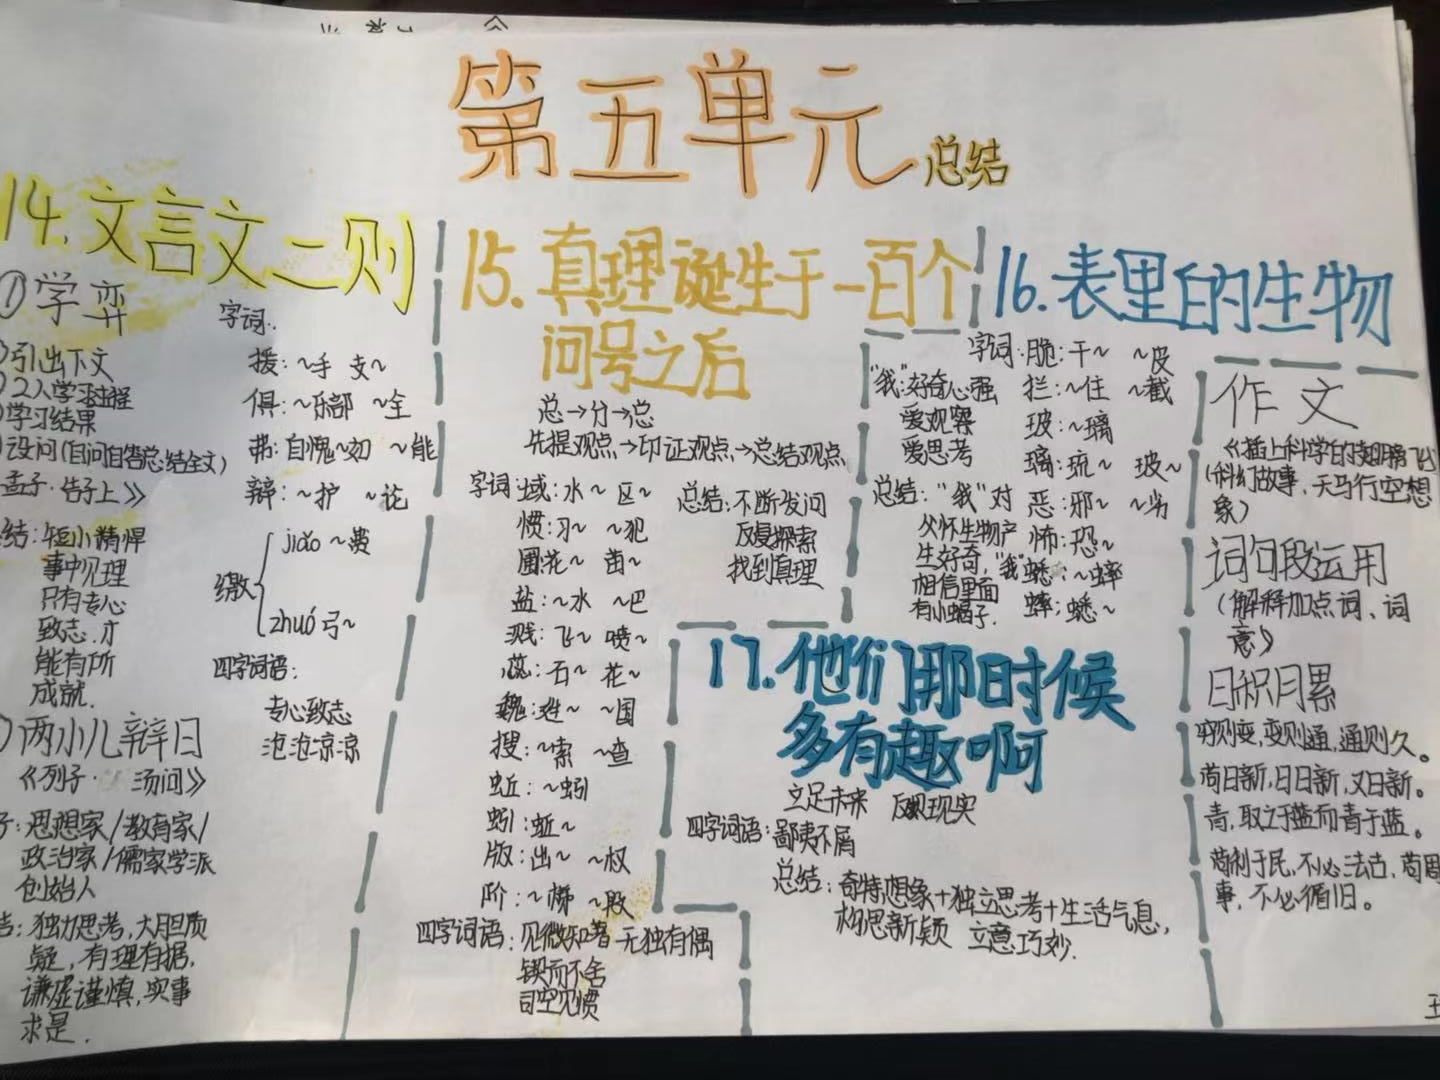 第五单元 总结
14.文言文二则
①学弈
引出下文
2人学习过程
学习结果
设问(自问自答总结全文)
孟子·告子上》
结:短小精悍
事中见理
只有专心
致志,才
能有所
成就.
两小儿辩日
《列子· 汤问》
子:思想家/教育家/
政治家/儒家学派
创始人
结:独力思考,大胆质
疑,有理有据,
谦虚谨慎,实事
求是.
字词:
援:~手 支~
俱:~乐部 ~全
弗:自愧~如 ~能
辩:~护 ~论
缴
jiǎo ~费
zhuó 弓~
四字词语:
专心致志
沧沧凉凉
15.真理诞生于一百个
问号之后
总→分→总
先提观点→印证观点→总结观点
字词:域:水~ 区~
惯:习~ ~犯
圃:花~ 苗~
盐:~水 ~巴
溅:飞~ 喷~
蕊:石~ 花~
魏:姓~ ~国
搜:~索 ~查
蚯:~蚓
蚓:蚯~
版:出~ ~权
阶:~梯 ~段
四字词语:见微知著 无独有偶
锲而不舍
司空见惯
总结:不断发问
反复探索
找到真理
16.表里的生物
"我":好奇心强
爱观察
爱思考
总结:"我"对
父怀生物产
生好奇,"我"
相信里面
有小蝎子.
字词:脆:干~ ~皮
拦:~住 ~截
玻:~璃
璃:琉~ 玻~
恶:邪~ ~劣
怖:恐~
蟋:~蟀
蟀:蟋~
17.他们那时候
多有趣啊
立足未来 反映现实
四字词语:鄙夷不屑
总结:奇特想象+独立思考+生活气息,
构思新颖 立意巧妙.
作文
《插上科学的翅膀飞》
(科幻故事、天马行空想
象)
词句段运用
(解释加点词、词
意)
日积月累
穷则变,变则通,通则久。
苟日新,日日新,又日新。
青,取之于蓝而青于蓝。
苟利于民,不必法古,苟周
事,不必循旧。